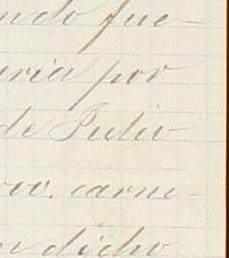 ndo fue-
uria por
de Julio
vo. carne-
n dicho